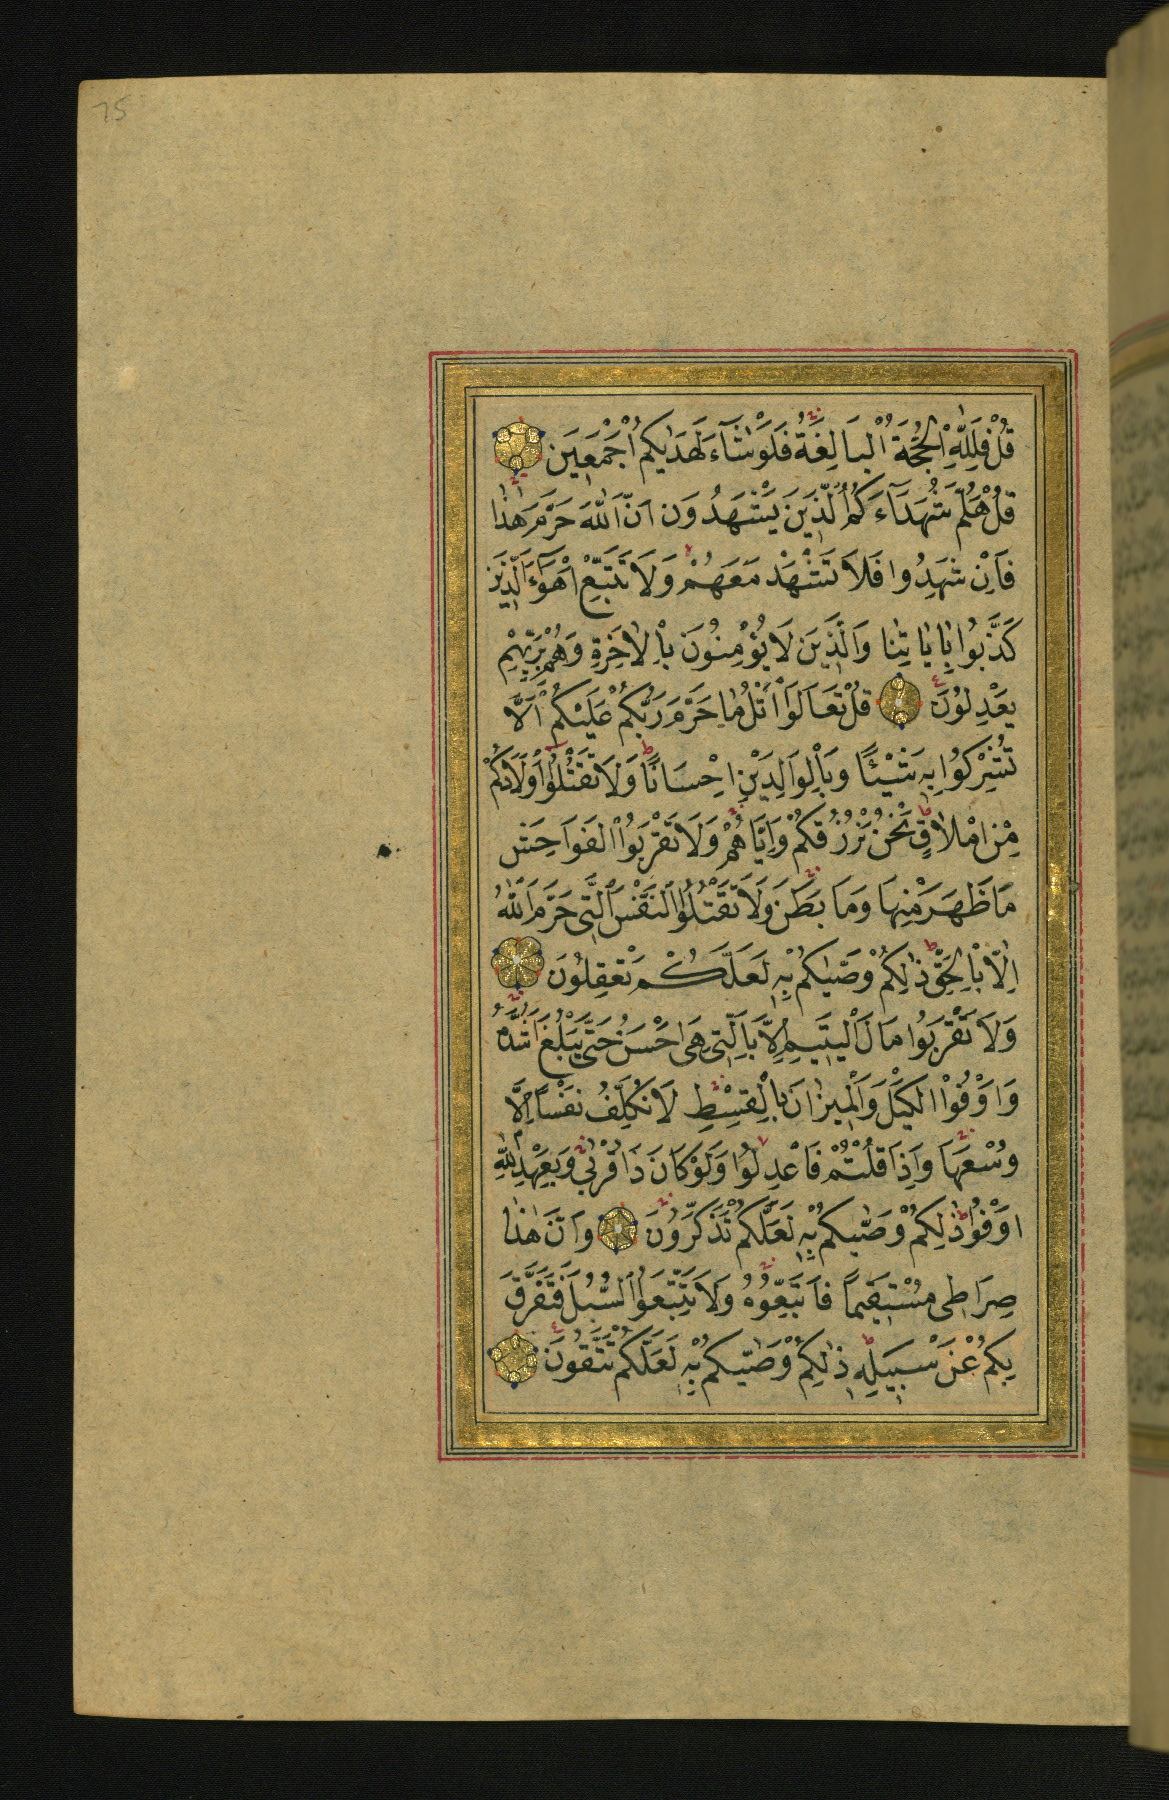 75
قُلْ فَلِلّٰهِ الْحُجَّةُ الْبَالِغَةُ فَلَوْ شَٓاءَ لَهَدٰيكُمْ اَجْمَعِينَ
قُلْ هَلُمَّ شُهَدَٓاءَكُمُ الَّذِينَ يَشْهَدُونَ اَنَّ اللّٰهَ حَرَّمَ هٰذَا
فَاِنْ شَهِدُوا فَلَا تَشْهَدْ مَعَهُمْ وَلَا تَتَّبِعْ اَهْوَٓاءَ الَّذِينَ
كَذَّبُوا بِاٰيَاتِنَا وَالَّذِينَ لَا يُؤْمِنُونَ بِالْاٰخِرَةِ وَهُمْ بِرَبِّهِمْ
يَعْدِلُونَ قُلْ تَعَالَوْا اَتْلُ مَا حَرَّمَ رَبُّكُمْ عَلَيْكُمْ اَلَّا
تُشْرِكُوا بِهِ شَيْئًا وَبِالْوَالِدَيْنِ اِحْسَانًا وَلَا تَقْتُلُوا اَوْلَادَكُمْ
مِنْ اِمْلَاقٍ نَحْنُ نَرْزُقُكُمْ وَاِيَّاهُمْ وَلَا تَقْرَبُوا الْفَوَاحِشَ
مَا ظَهَرَ مِنْهَا وَمَا بَطَنَ وَلَا تَقْتُلُوا النَّفْسَ الَّتِي حَرَّمَ اللّٰهُ
اِلَّا بِالْحَقِّ ذٰلِكُمْ وَصّٰيكُمْ بِهِ لَعَلَّكُمْ تَعْقِلُونَ
وَلَا تَقْرَبُوا مَالَ الْيَتِيمِ اِلَّا بِالَّتِي هِيَ اَحْسَنُ حَتّٰى يَبْلُغَ اَشُدَّهُ
وَاَوْفُوا الْكَيْلَ وَالْمِيزَانَ بِالْقِسْطِ لَا نُكَلِّفُ نَفْسًا اِلَّا
وُسْعَهَا وَاِذَا قُلْتُمْ فَاعْدِلُوا وَلَوْ كَانَ ذَا قُرْبٰى وَبِعَهْدِ اللّٰهِ
اَوْفُوا ذٰلِكُمْ وَصّٰيكُمْ بِهِ لَعَلَّكُمْ تَذَكَّرُونَ وَاَنَّ هٰذَا
صِرَاطِي مُسْتَقِيمًا فَاتَّبِعُوهُ وَلَا تَتَّبِعُوا السُّبُلَ فَتَفَرَّقَ
بِكُمْ عَنْ سَبِيلِهِ ذٰلِكُمْ وَصّٰيكُمْ بِهِ لَعَلَّكُمْ تَتَّقُونَ